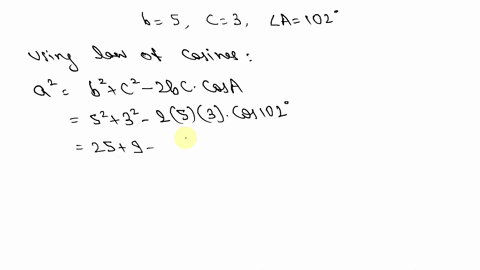 b = 5, C = 3, ∠A = 102°
Using law of Cosines:
a² = b² + c² - 2bC. CosA
= 5² + 3² - 2(5)(3). Cos102°
= 25 + 9 -